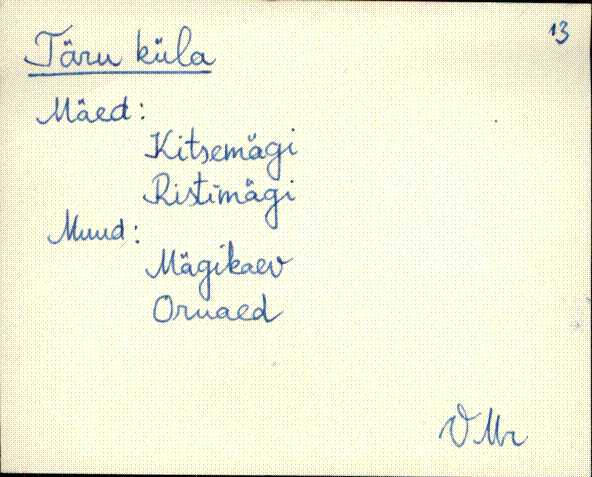 13
Täru küla
Mäed:
Kitsemägi
Ristimägi
Muud:
Mägikaev
Oruaed
VMr